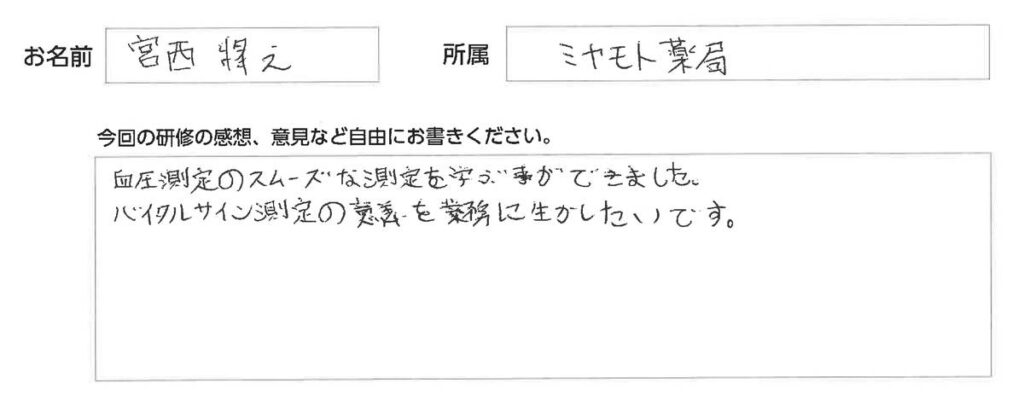 お名前 宮西 将之 所属 ミヤモト薬局
今回の研修の感想、意見など自由にお書きください。
血圧測定のスムーズな測定を学ぶ事ができました。
バイタルサイン測定の意義を業務に生かしたいです。